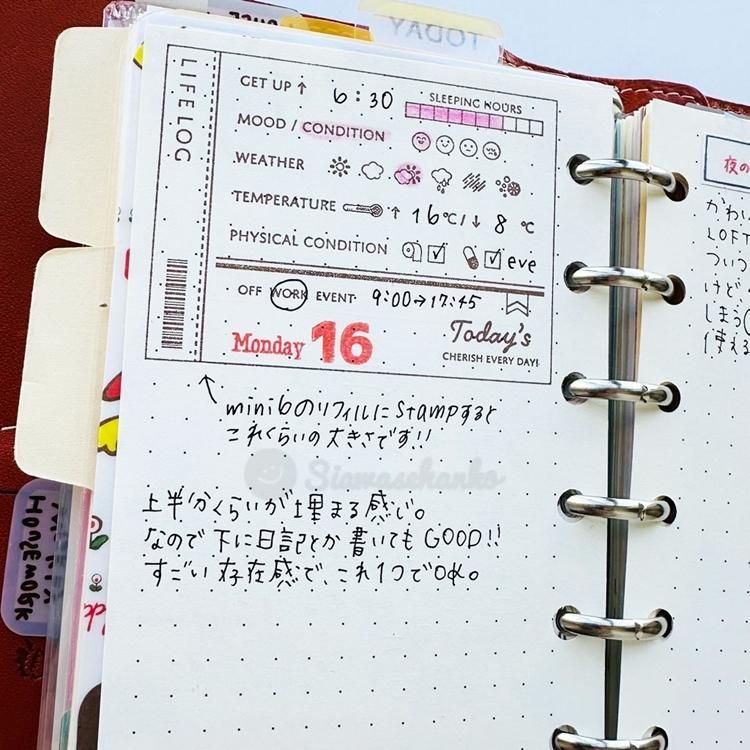 TODAY
LIFE LOG
GET UP ↑ 6:30 SLEEPING HOURS
MOOD / CONDITION
WEATHER
TEMPERATURE ↑ 16℃/↓ 8 ℃
PHYSICAL CONDITION ☑ ☑ eve
OFF WORK EVENT 9:00→17:45
Monday 16 Today's
CHERISH EVERY DAY!
mini6のリフィルにstampすると
これくらいの大きさです!!
Siawasehanko
上半分くらいが埋まる感じ。
なので下に日記とか書いてもGOOD!!
すごい存在感で、これ1つでOK。
夜の
かわい
LOFT
ついつ
けど、
しまう(
使える